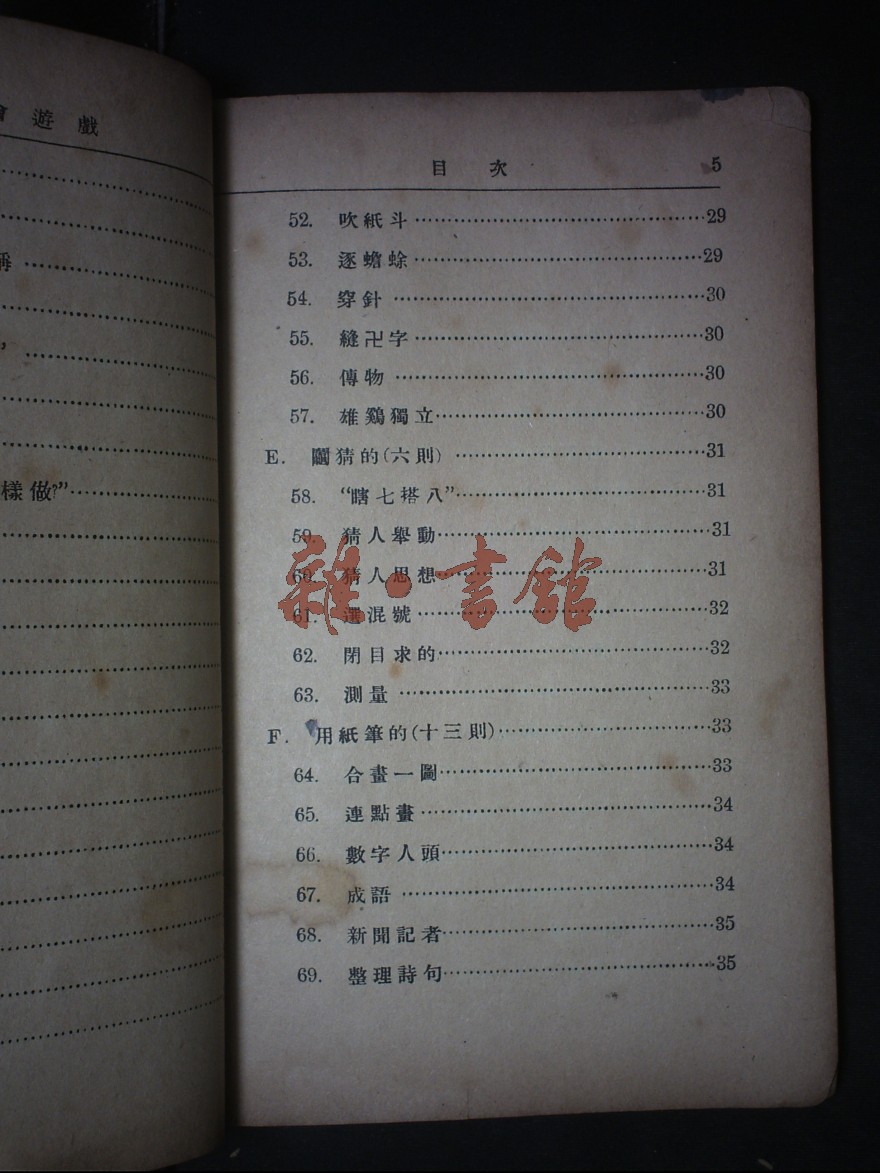 會遊戲
稱
”
樣做?”
目次 5
52. 吹紙斗 29
53. 逐蟾蜍 29
54. 穿針 30
55. 縫卍字 30
56. 傳物 30
57. 雄鷄獨立 30
E. 鬭猜的(六則) 31
58. “瞎七搭八” 31
59. 猜人舉動 31
60. 猜人思想 31
61. 選混號 32
62. 閉目求的 32
63. 測量 33
F. 用紙筆的(十三則) 33
64. 合畫一圖 33
65. 連點畫 34
66. 數字人頭 34
67. 成語 34
68. 新聞記者 35
69. 整理詩句 35
雜·書館